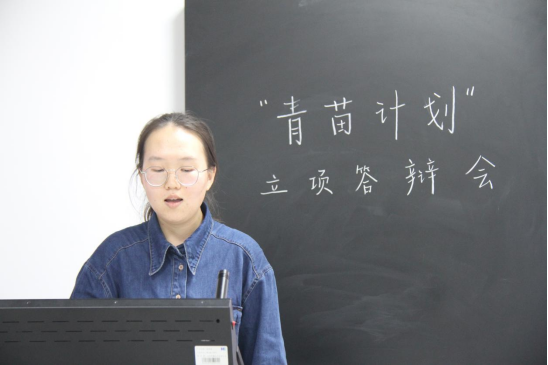 "青苗计划"
立项答辩会